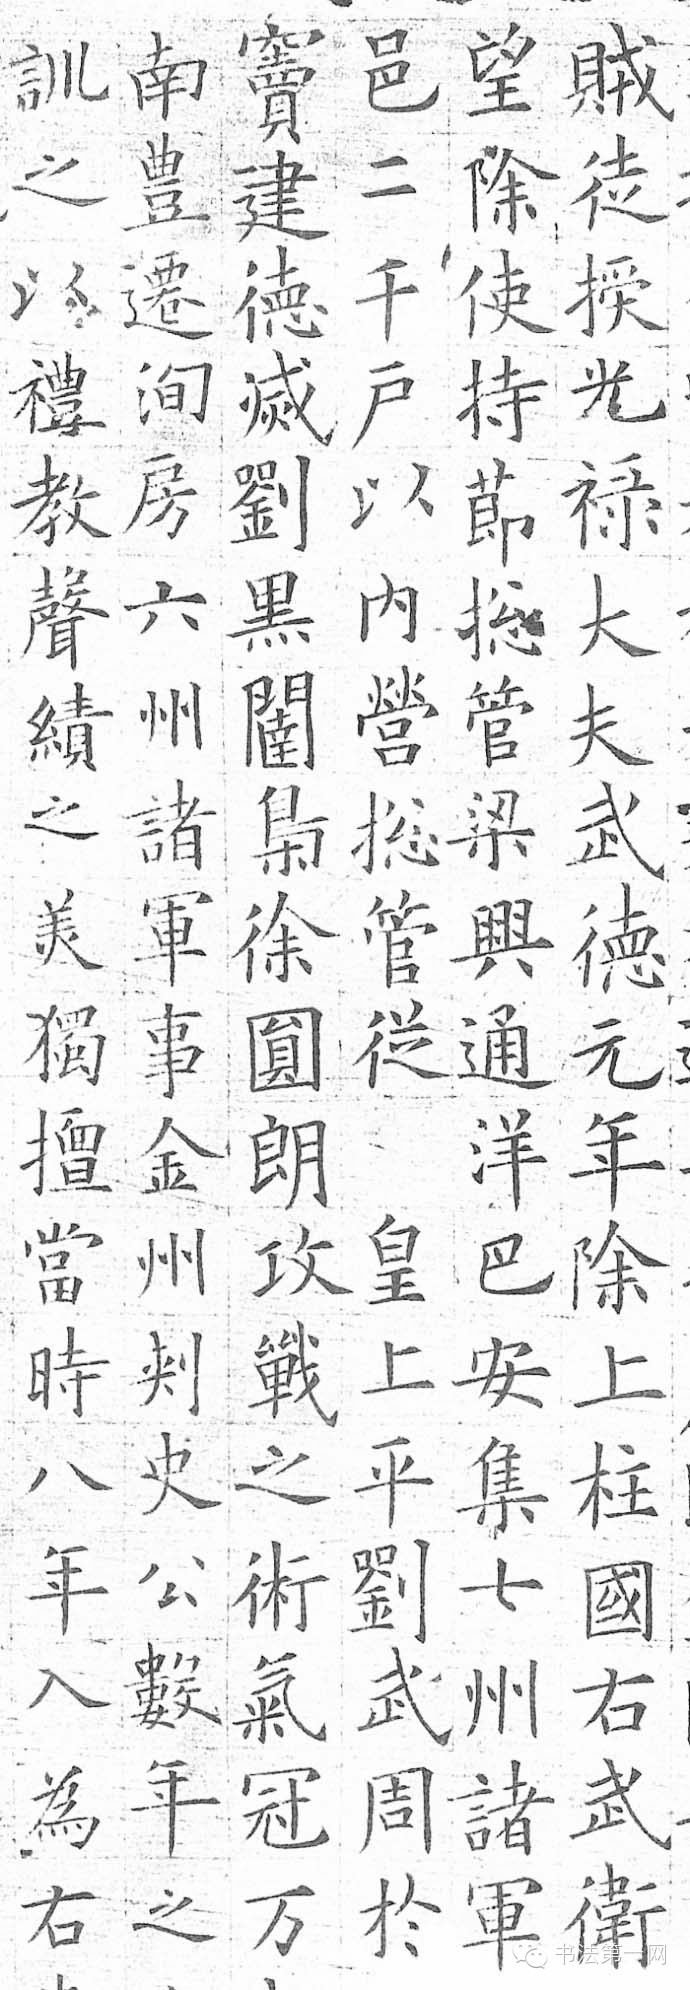 賊徒授光祿大夫武德元年除上柱國右武衛
望除使持節揔管梁興通洋巴安集七州諸軍
邑二千戶以內營揔管從皇上平劉武周於
竇建德滅劉黑闥梟徐圓朗攻戰之術氣冠万
南豊遷洵房六州諸軍事金州刾史公數年之
訓之以禮教聲績之美獨擅當時八年入為右
书法第一网